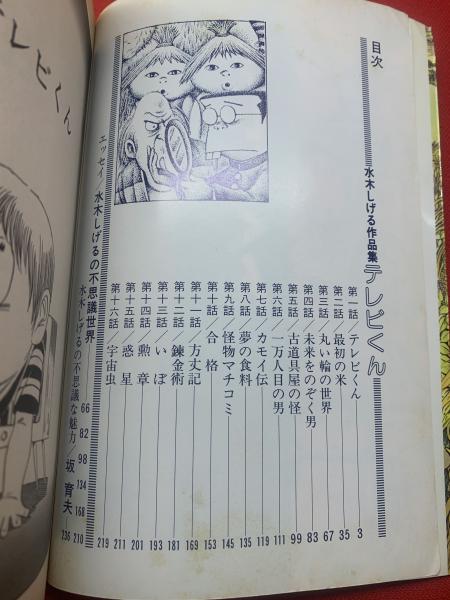 目次
水木しげる作品集
テレビくん
第一話／テレビくん 3
第二話／最初の米 35
第三話／丸い輪の世界 67
第四話／未来をのぞく男 83
第五話／古道具屋の怪 99
第六話／一万人目の男 111
第七話／カモイ伝 119
第八話／夢の食料 135
第九話／怪物マチコミ 145
第十話／合格 153
第十一話／方丈記 169
第十二話／錬金術 181
第十三話／いぼ 193
第十四話／勲章 201
第十五話／惑星 211
第十六話／宇宙虫 219
エッセイ／水木しげるの不思議世界 66 82 98 134 168 210
水木しげるの不思議な魅力／坂育夫 236
レビくん